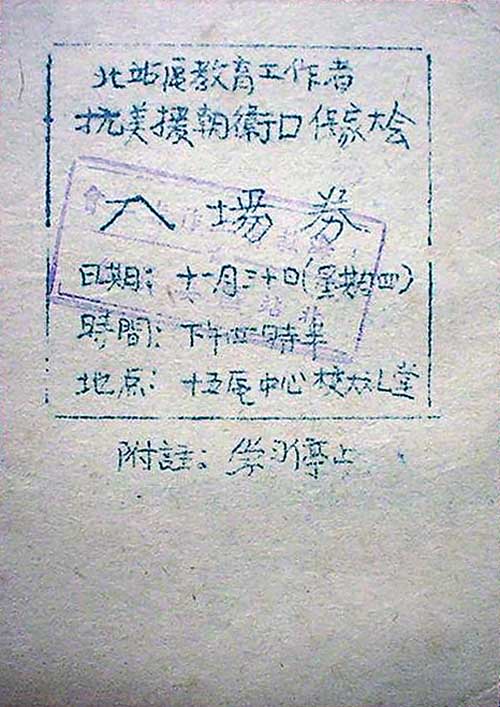 北站區教育工作者
抗美援朝衛囗保家大会
入場券
日期：十一月三十日(星期四)
時間：下午四時半
地点：十五區中心校大礼堂
附註：学习停止